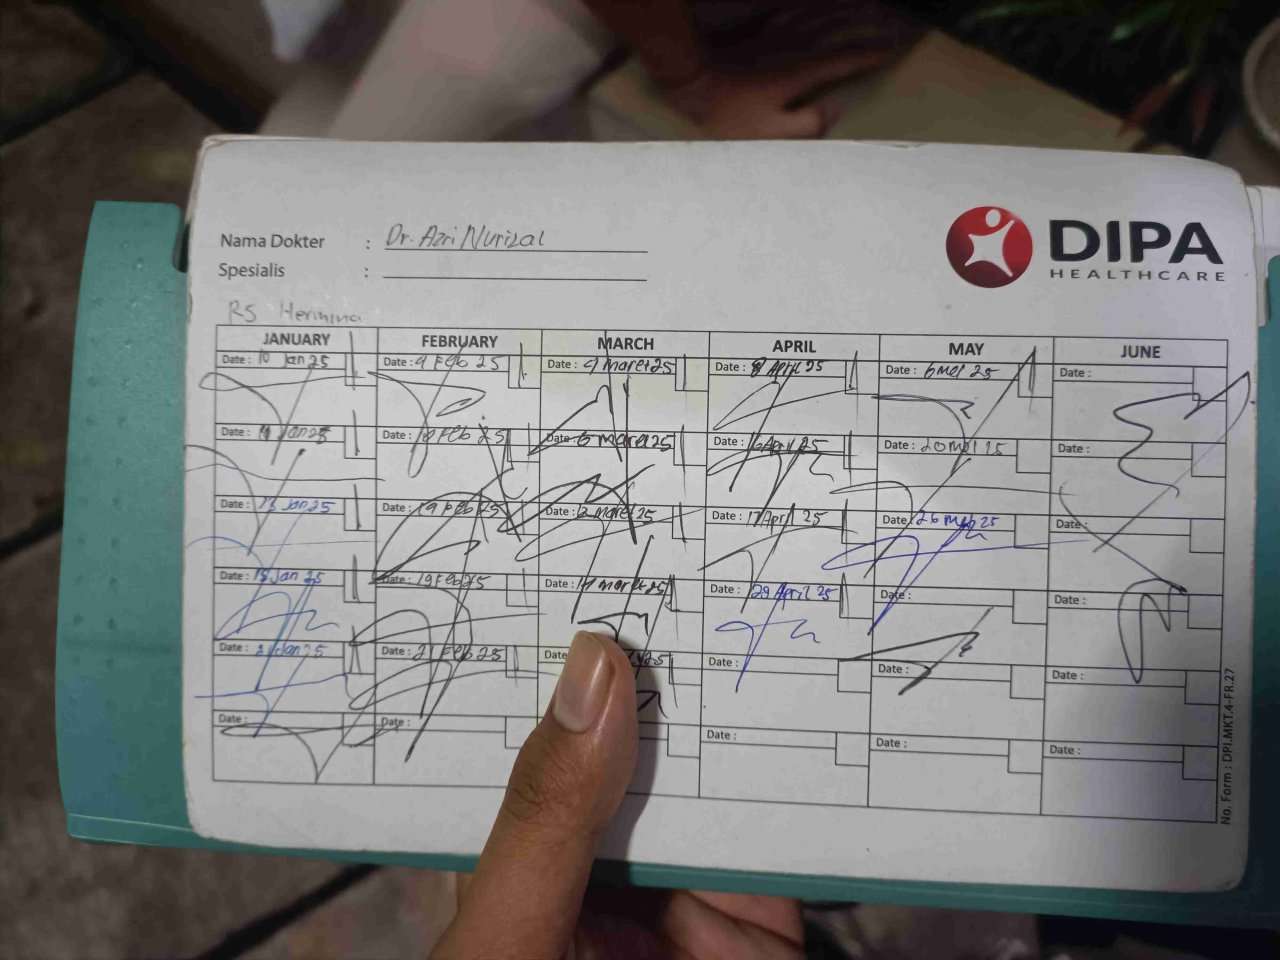 DIPA
HEALTHCARE
Nama Dokter : Dr. Azri Nurizal
Spesialis :
RS Hermina
JANUARY FEBRUARY MARCH APRIL MAY JUNE
Date : 10 Jan 25 Date : 4 Feb 25 Date : 4 maret 25 Date : 8 April 25 Date : 6 mei 25 Date :
Date : Jan 25 Date : Feb 25 Date : 6 maret 25 Date : 16 April 25 Date : 20 mei 25 Date :
Date : 13 Jan 25 Date : 19 Feb 25 Date : maret 25 Date : 17 April 25 Date : 26 mei 25 Date :
Date : 15 Jan 25 Date : 19 Feb 25 Date : maret 25 Date : 29 April 25 Date : Date :
Date : Jan 25 Date : 21 Feb 25 Date : 25 Date : Date : Date :
Date : Date : Date : Date : Date :
No. Form : DPI.MKT.4-FR.27